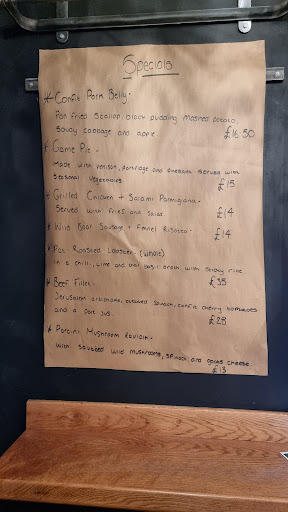 Specials
* Confit Pork Belly.
Pan fried Scallop, black pudding mashed potato,
Savoy cabbage and apple. £16.50
* Game Pie.
Made with venison, partridge and pheasant served with
Seasonal vegetables. £15
* Grilled Chicken + Salami Parmigiana.
Served with fries and salad. £14
* Wild Boar Sausage + Fennel Risotto. £14
* Pot Roasted Lobster. (whole)
in a chilli, lime and basil broth, with sticky rice
£35
* Beef Fillet.
Jerusalem artichoke, spinach, confit cherry tomatoes
and a port jus. £28
* Porcini Mushroom Ravioli.
With sauteed wild mushrooms, spinach and goats cheese.
£13